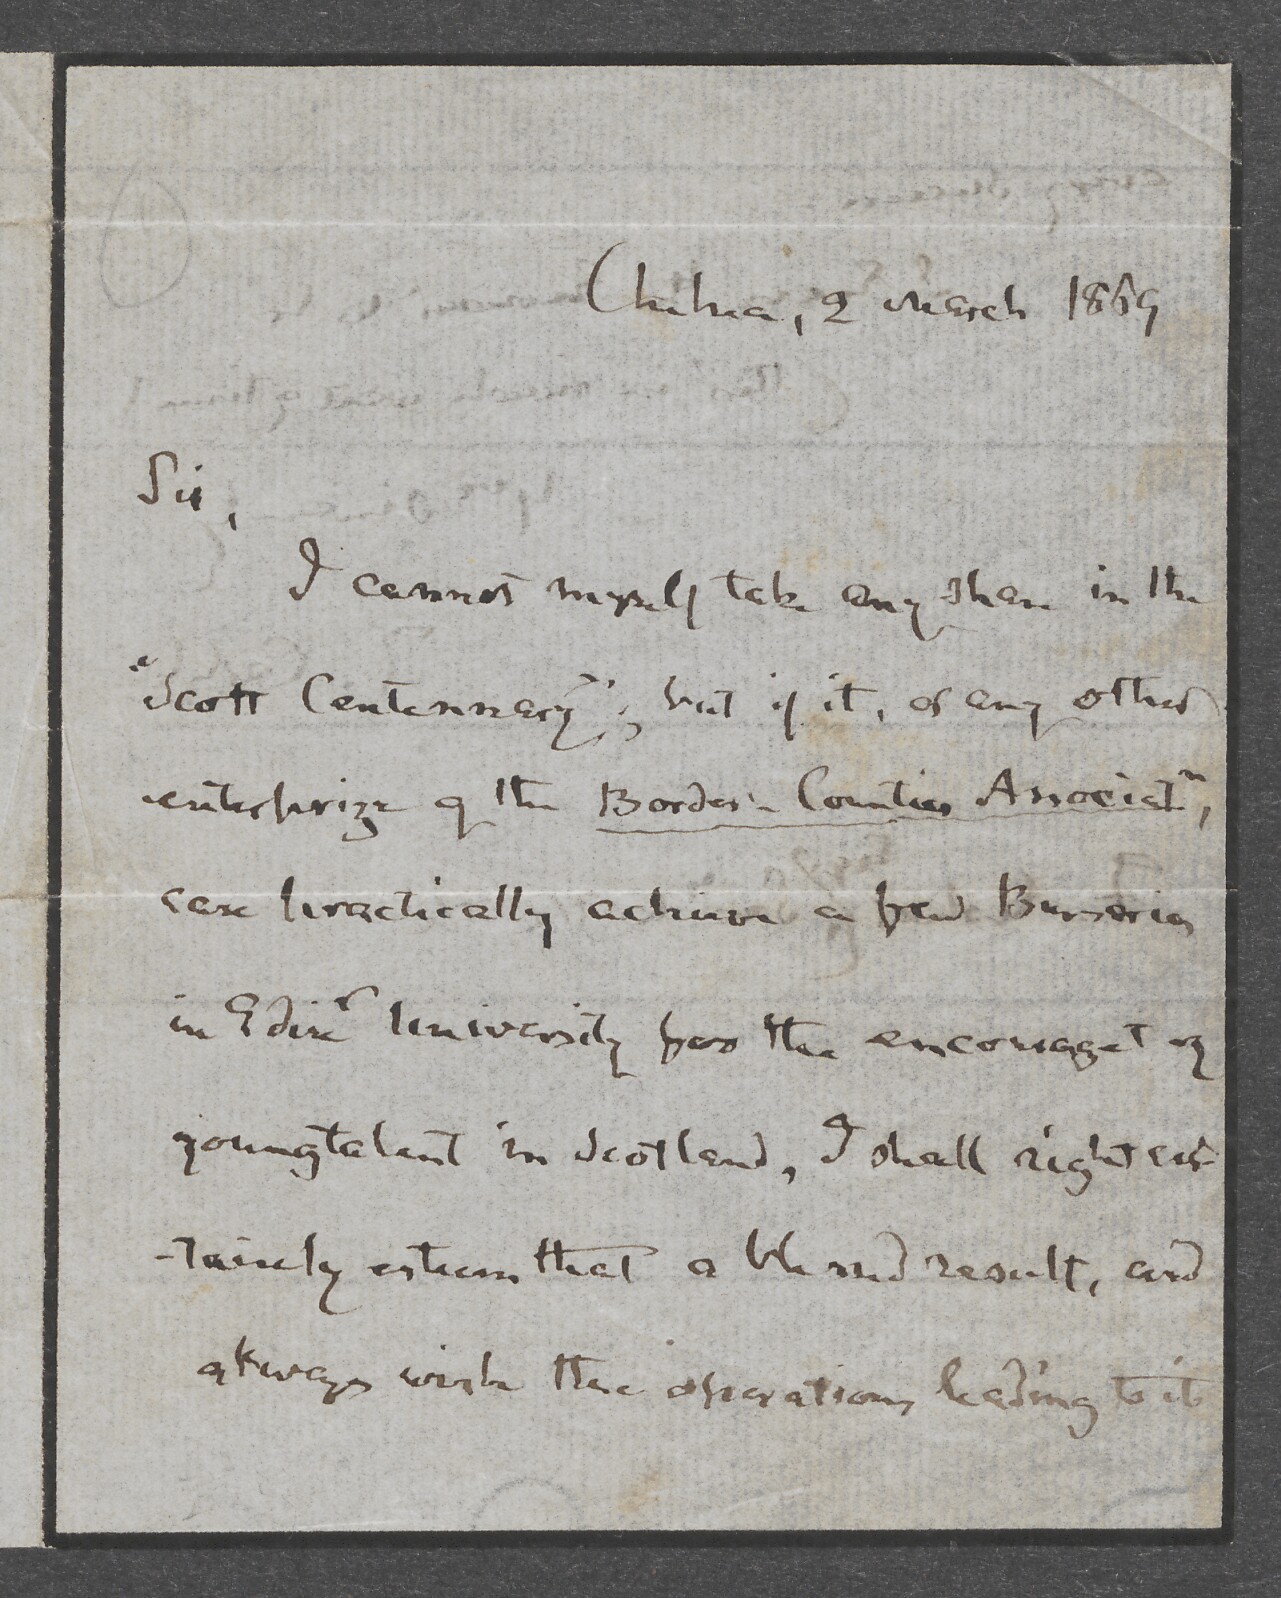 Chelsea, 2 March 1869
Sir,
I cannot myself take any share in the
"Scott Centennary"; but if it, or any other
enterprize of the Border-Counties Associatn,
can practically achieve a few Bursaries
in Edinr University for the encouraget of
young talent in Scotland, I shall right cer-
-tainly esteem that a blessed result, and
always wish the operations leading to it